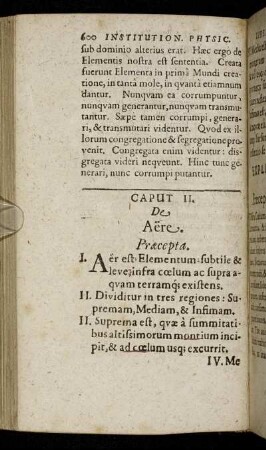 600 INSTITUTION. PHYSIC.
sub dominio alterius erat. Hæc ergo de
Elementis nostra est sententia. Creata
fuerunt Elementa in primâ Mundi crea-
tione, in tantâ mole, in qvantâ etiamnum
dantur. Nunqvam ea corrumpuntur,
nunqvam generantur, nunqvam transmu-
tantur. Sæpe tamen corrumpi, genera-
ri, & transmutari videntur. Qvod ex il-
lorum congregatione & segregatione pro-
venit. Congregata enim videntur: dis-
gregata videri neqveunt. Hinc tunc ge-
nerari, nunc corrumpi putantur.
CAPUT II.
De
Aëre.
Præcepta.
I. Aër est Elementum subtile &
leve, infra cœlum ac supra a-
qvam terramq; existens.
II. Dividitur in tres regiones: Su-
premam, Mediam, & Infimam.
II. Suprema est, qvæ à summitati-
bus altissimorum montium inci-
pit, & ad cœlum usq; excurrit.
IV. Me